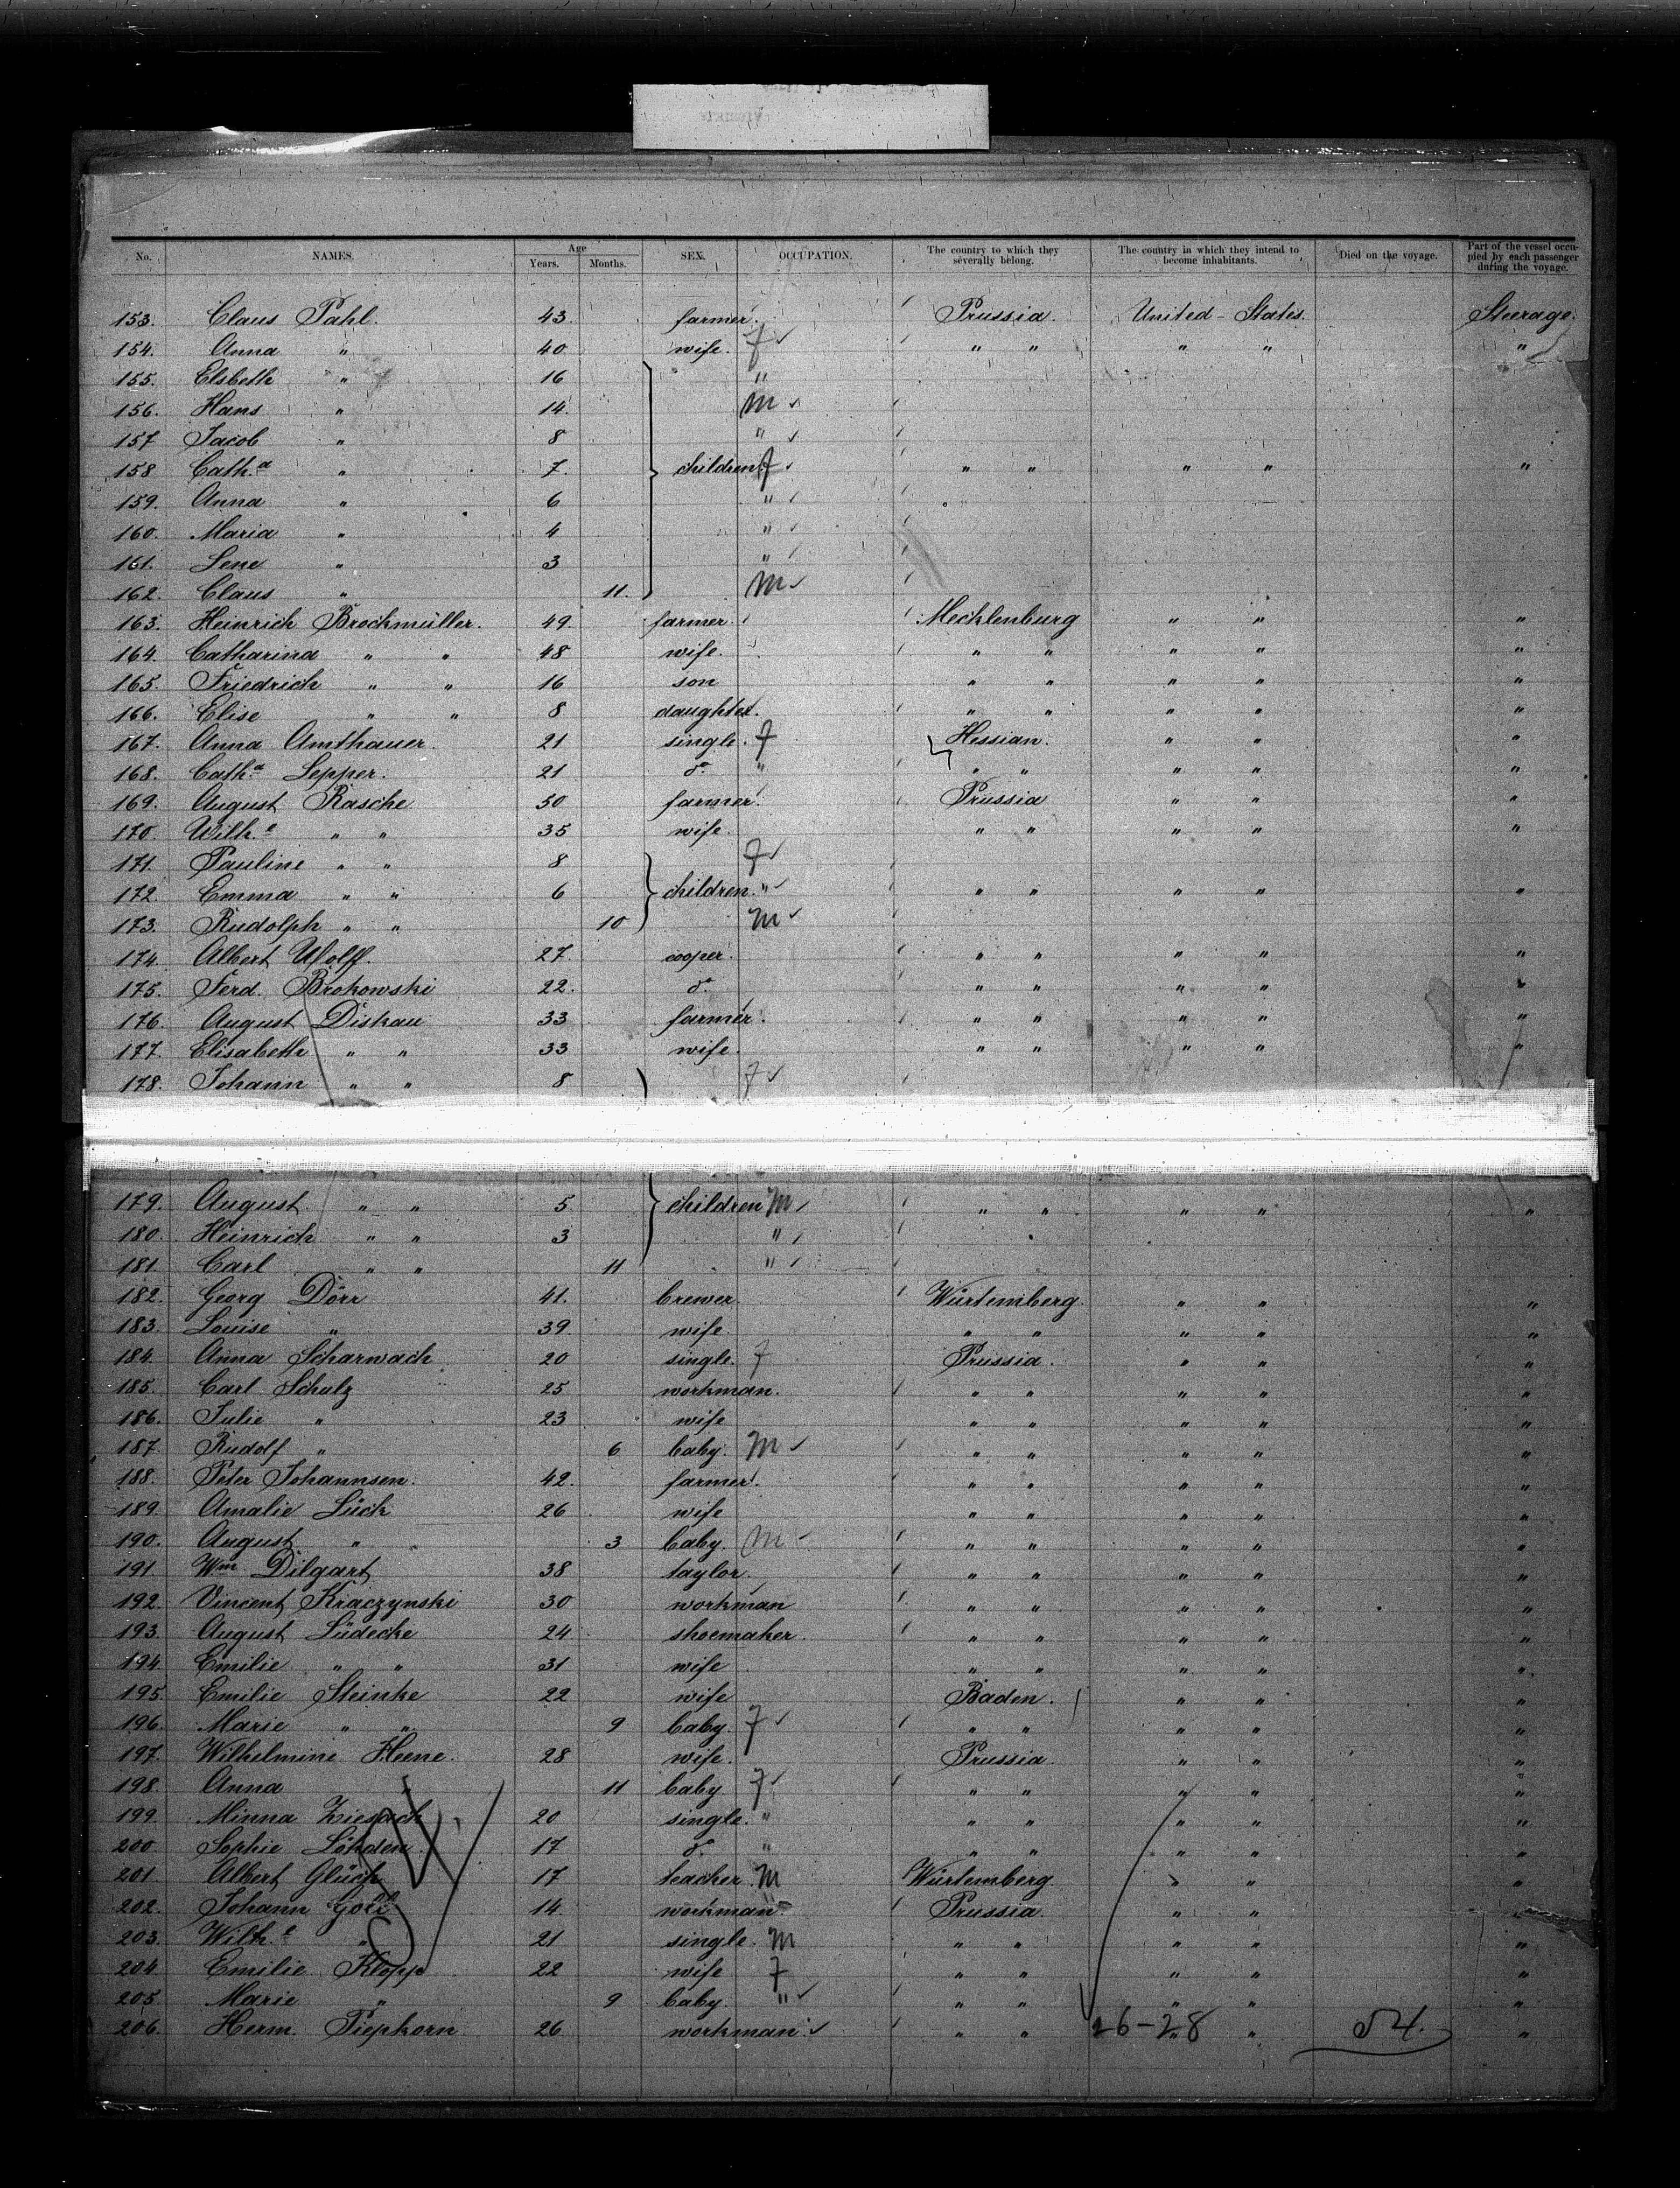 No. NAMES. Age Years. Months. SEX. OCCUPATION. The country to which they severally belong. The country in which they intend to become inhabitants. Died on the voyage. Part of the vessel occupied by each passenger during the voyage.
153. Claus Pahl. 43. farmer. Prussia. United-States. Steerage.
154. Anna " 40 wife. F " " " " "
155. Elsbeth " 16 "
156. Hans " 14. M
157 Jacob " 8 "
158 Cath.a " 7. children. F " " " " "
159. Anna " 6 "
160. Maria " 4 "
161. Lene " 3 "
162. Claus " 11. M
163. Heinrich Brockmüller. 49. farmer. Mecklenburg " " "
164. Catharina " " 48 wife. " " " " "
165. Friedrich " " 16 son " " " " "
166. Elise " " 8 daughter. " " " " "
167. Anna Amthauer. 21 single. F Hessian. " " "
168. Cath.a Lepper. 21 do. " " " " " "
169. August Rasche 50 farmer. Prussia " " "
170. Wilh.e " " 35 wife. " " " " "
171. Pauline " " 8 F
172. Emma " " 6 children. " " " " " "
173. Rudolph " " 10 M
174. Albert Wolff. 27. cooper. " " " " "
175. Ferd. Brokowski 22. do. " " " " "
176. August Diskau 33 farmer. " " " " "
177. Elisabeth " " 33 wife. " " " " "
178. Johann " " 8 F
179. August " " 5. children M " " " " "
180. Heinrich " " 3 "
181. Carl " " 11 "
182. Georg Dörr 41. brewer. Würtemberg. " " "
183. Louise " 39. wife. " " " " "
184. Anna Scharwach 20 single. F Prussia. " " "
185. Carl Schulz 25 workman. " " " " "
186. Julie " 23 wife " " " " "
187. Rudolf " 6 baby. M " " " " "
188. Peter Johannsen. 42. farmer. " " " " "
189. Amalie Lück 26 wife " " " " "
190. August " 3 baby. M " " " " "
191. Wm Dilgart 38 taylor. " " " " "
192. Vincent Kraczynski 30 workman " " " " "
193. August Lüdecke 24 shoemaker. " " " " "
194. Emilie " " 31 wife " " " " "
195. Emilie Steinke 22 wife Baden. " " "
196. Marie " " 9 baby. F " " " " "
197. Wilhelmine Heene. 28 wife. Prussia " " "
198. Anna " 11 baby F " " " " "
199. Minna Ziesach 20 single. " " " " " "
200. Sophie Löhden. 17 do. " " " " " "
201. Albert Glück 17 teacher. M Würtemberg. " " "
202. Johann 14. workman. " Prussia. " " "
203. Wilh.e " 21 single. M " " " " "
204 Emilie Klopp 22 wife F " " " " "
205. Marie " 9 baby. " " " " " "
206. Herm. Piepkorn 26 workman. " " 26-28 " 54. "